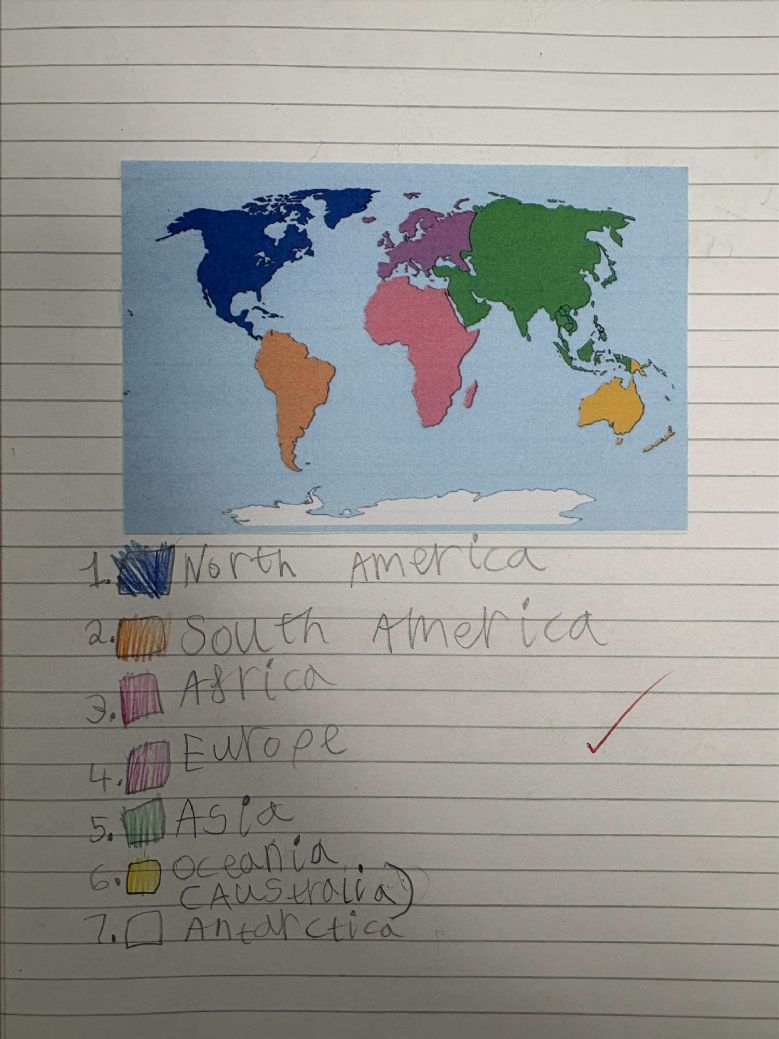 1. North America
2. South America
3. Africa
4. Europe
5. Asia
6. Oceania
(Australia)
7. Antarctica